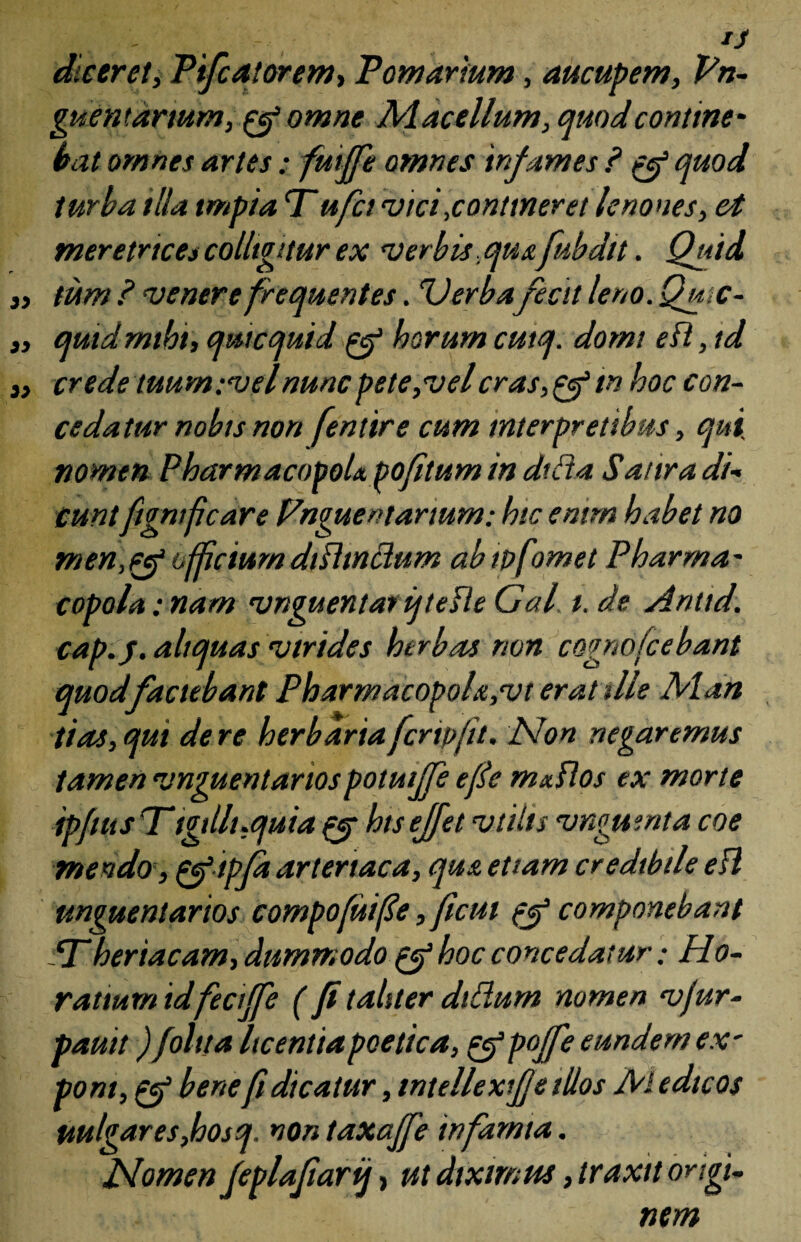 15
diceret, Piſcatorem, Pomarium, aucupem, Vn-
guentarium, & omne Macellum, quod contine-
bat omnes artes: fuiſſe omnes infames? & quod
turba illa impia Tuſci vici, contineret lenones, et
meretrices colligitur ex verbis, quæ ſubdit. Quid
„ tùm? venere frequentes. Verba fecit leno. Quic-
„ quid mihi, quicquid & horum cuiq. domi eſt, id
„ crede tuum: vel nunc pete, vel cras, & in hoc con-
cedatur nobis non ſentire cum interpretibus, qui
nomen Pharmacopolæ poſitum in dicta Satira di-
cunt ſignificare Vnguentarium: hic enim habet no
men, & officium diſtinctum ab ipſomet Pharma-
copola: nam vnguentarij teſte Gal. 1. de Antid.
cap. 5. aliquas virides herbas non cognoſcebant
quod faciebant Pharmacopolæ, vt erat ille Man
tias, qui de re herbaria ſcripſit. Non negaremus
tamen vnguentarios potuiſſe eſſe mæſtos ex morte
ipſius Tigilli, quia & his eſſet vtilis vnguenta coe
mendo, & ipſa arteriaca, quæ etiam credibile eſt
unguentarios compoſuiſſe, ſicut & componebant
Theriacam, dummodo & hoc concedatur: Ho-
ratium id feciſſe (ſi taliter dictum nomen vſur-
pauit) ſolita licentia poetica, & poſſe eundem ex-
poni, & bene ſi dicatur, intellexiſſe illos Medicos
uulgares, hosq. non taxaſſe infamia.
Nomen ſeplaſiarij, ut diximus, traxit origi-
nem